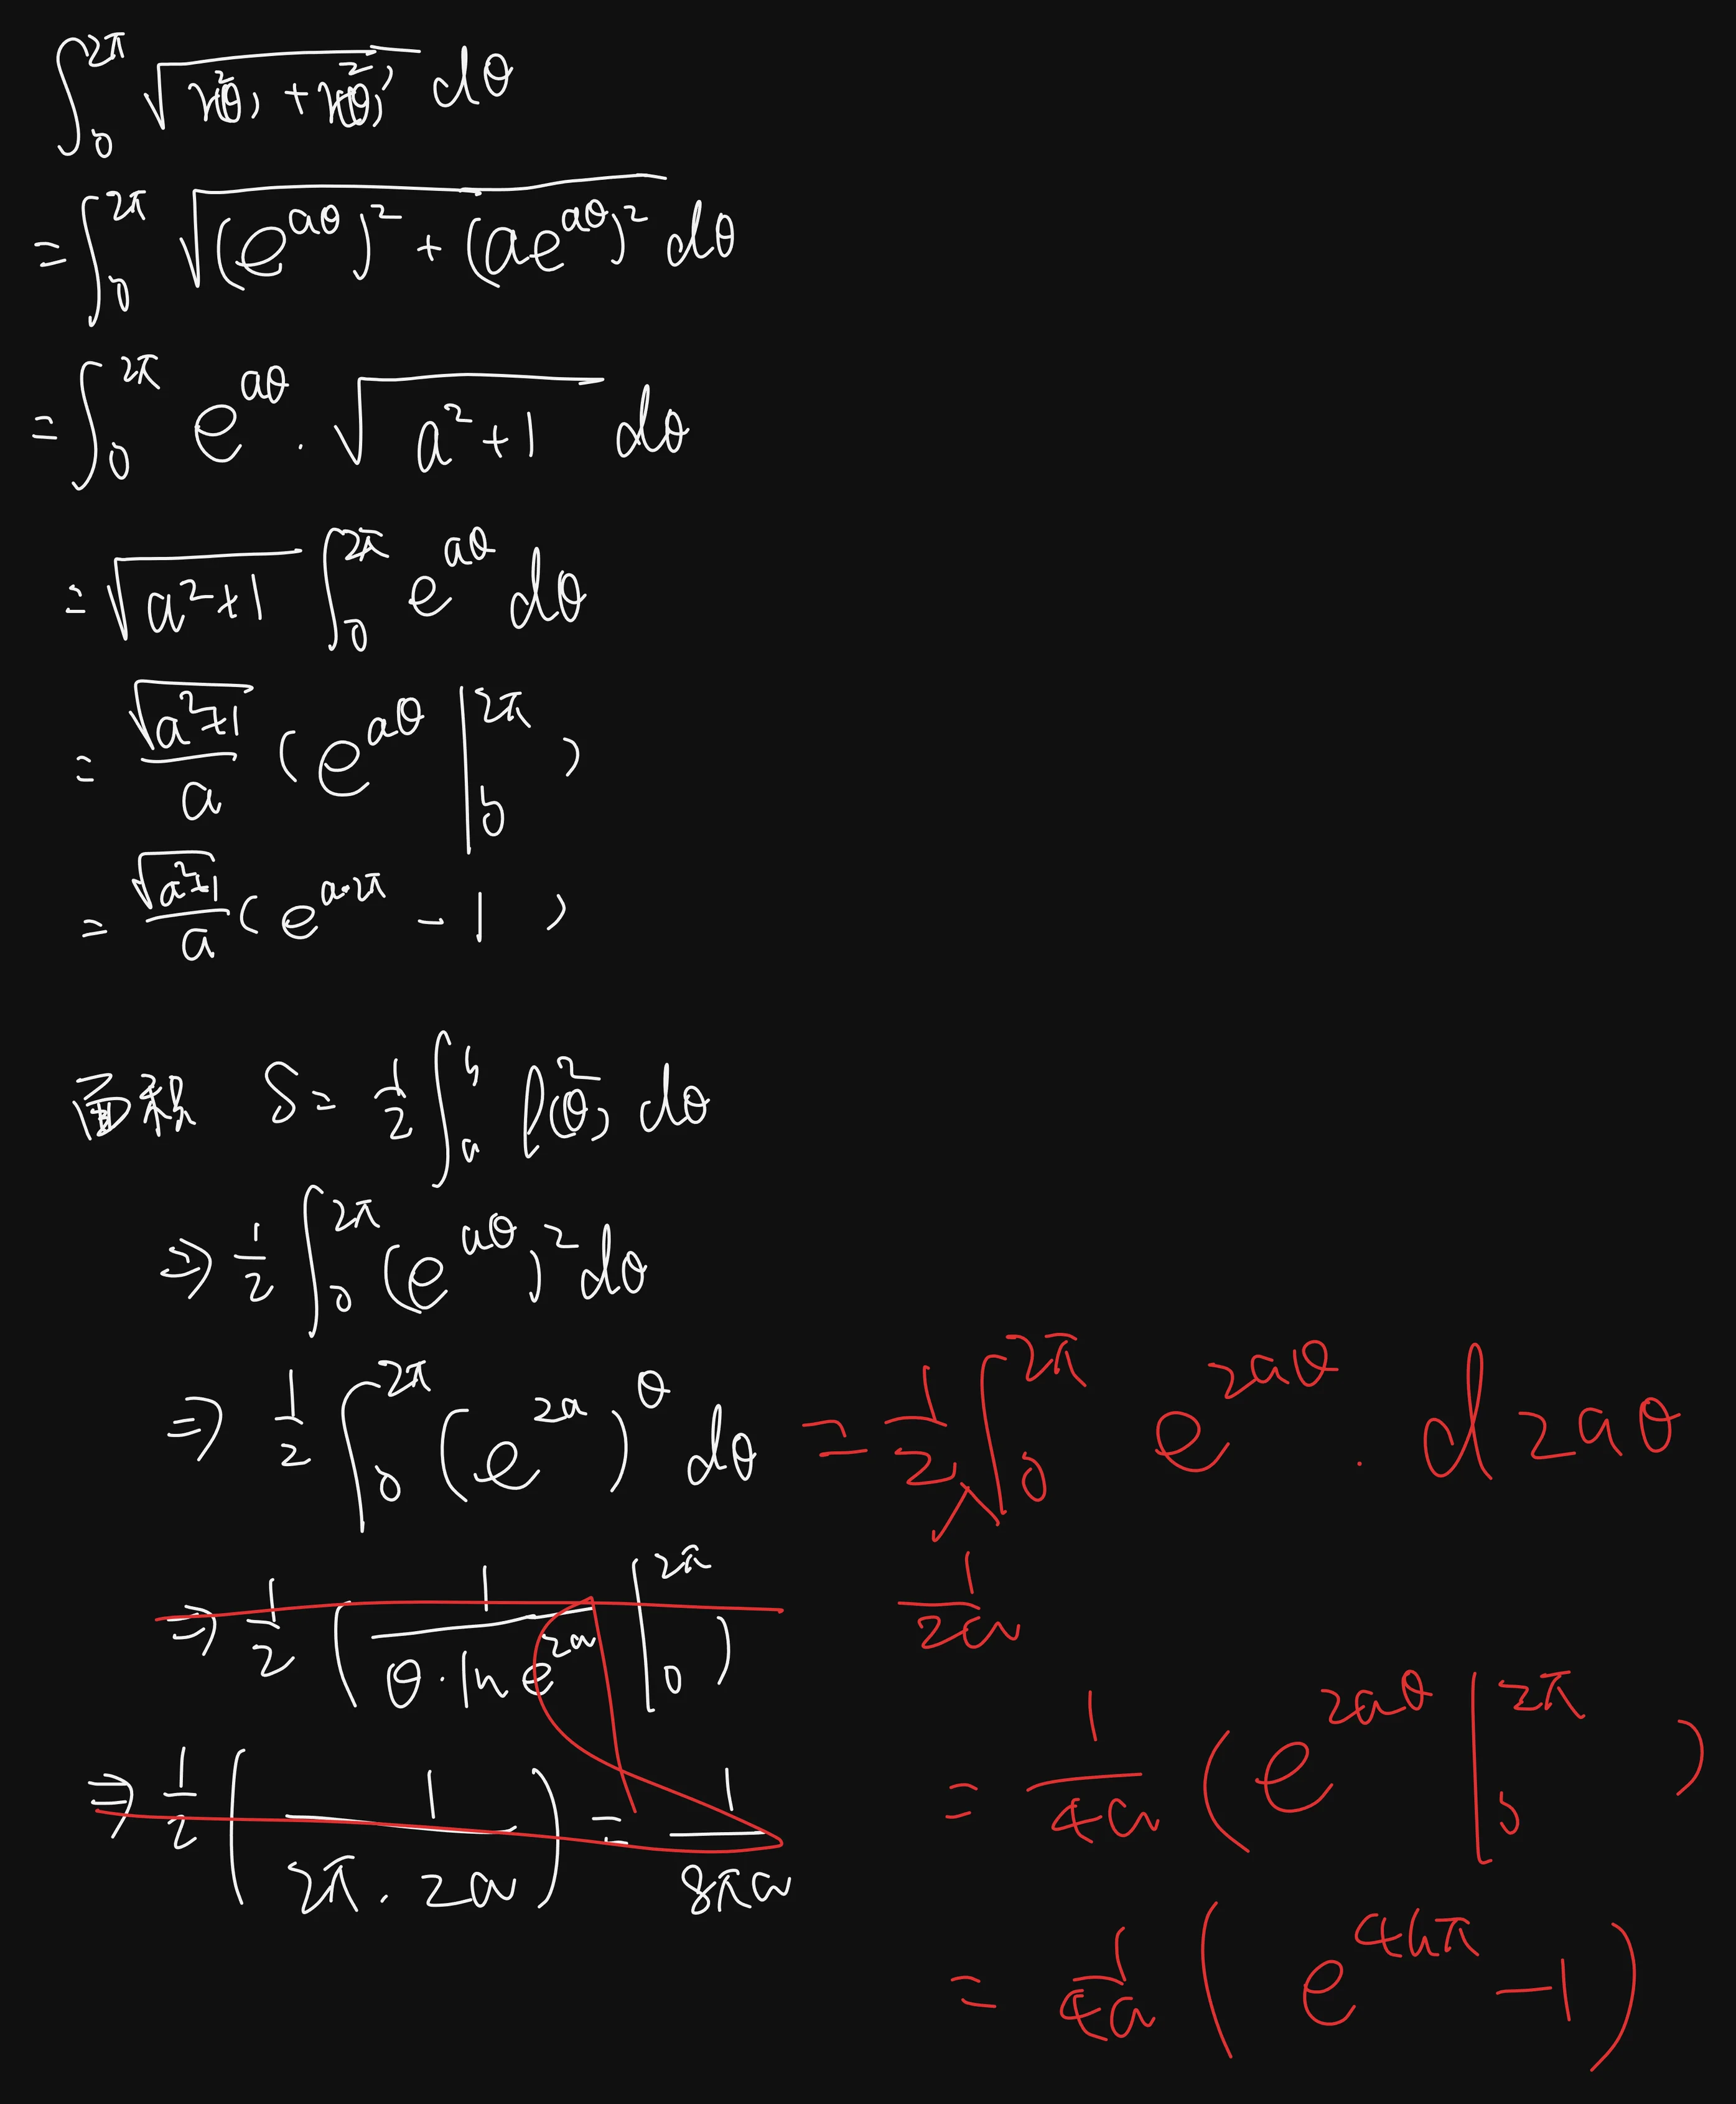 ∫₀^{2π} √(r²(θ) + r'²(θ)) dθ
= ∫₀^{2π} √((e^{aθ})² + (ae^{aθ})²) dθ
= ∫₀^{2π} e^{aθ} · √(a²+1) dθ
= √(a²+1) ∫₀^{2π} e^{aθ} dθ
= √(a²+1)/a (e^{aθ} |₀^{2π})
= √(a²+1)/a (e^{a·2π} - 1)
面积 S = 1/2 ∫ₐᵇ r²(θ) dθ
⇒ 1/2 ∫₀^{2π} (e^{aθ})² dθ
⇒ 1/2 ∫₀^{2π} (e^{2a})^θ dθ = 1/2 ∫₀^{2π} e^{2aθ} · d2aθ
1/2a
⇒ 1/2 (1/(θ · ln e^{2a}) |₀^{2π})
= 1/4a (e^{2aθ} |₀^{2π})
⇒ 1/2 (1/(2π · 2a)) = 1/8πa
= 1/4a (e^{4aπ} - 1)